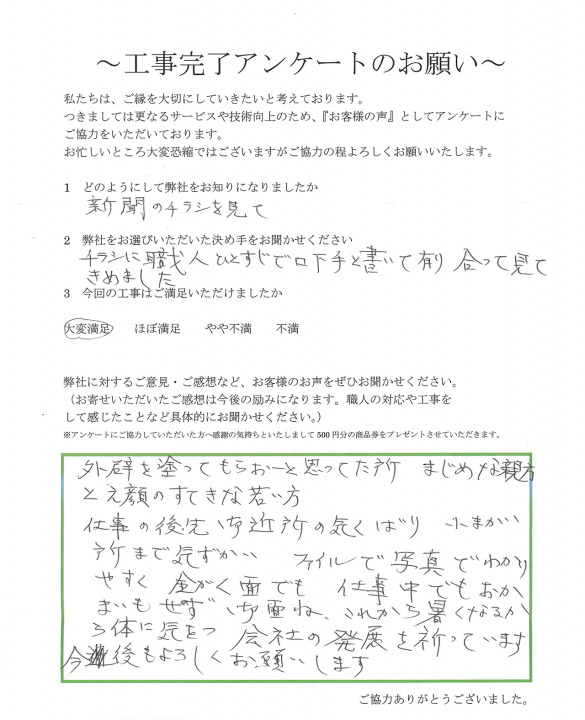 ～工事完了アンケートのお願い～
私たちは、ご縁を大切にしていきたいと考えております。
つきましては更なるサービスや技術向上のため、『お客様の声』としてアンケートに
ご協力をいただいております。
お忙しいところ大変恐縮ではございますがご協力の程よろしくお願いいたします。
1 どのようにして弊社をお知りになりましたか
新聞のチラシを見て
2 弊社をお選びいただいた決め手をお聞かせください
チラシに職人ひとすじで口下手と書いて有り 合って見て
きめました
3 今回の工事はご満足いただけましたか
大変満足 ほぼ満足 やや不満 不満
弊社に対するご意見・ご感想など、お客様のお声をぜひお聞かせください。
（お寄せいただいたご感想は今後の励みになります。職人の対応や工事を
して感じたことなど具体的にお聞かせください。）
※アンケートにご協力していただいた方へ感謝の気持ちといたしまして500円分の商品券をプレゼントさせていただきます。
外壁を塗ってもらおーと思ってた所 まじめな親方
とえ顔のすてきな若い方
仕事の後先 近所の気くばり 小まかい
所まで気ずかい ファイルで写真でわかり
やすく 金がく面でも 仕事中でもおか
まいもせず これから暑くなるか
ら体に気をつ 会社の発展を祈っています
今後もよろしくお願いします
ご協力ありがとうございました。